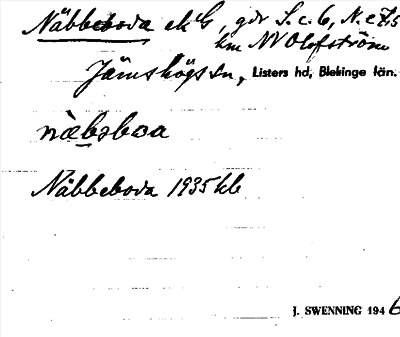 Näbbeboda ekG, gdr S.c.6, N.e 7,5
km NV Olofström
Jämshögs sn, Listers hd, Blekinge län.
näbsboa
Näbbeboda 1935 kb
J. SWENNING 1946